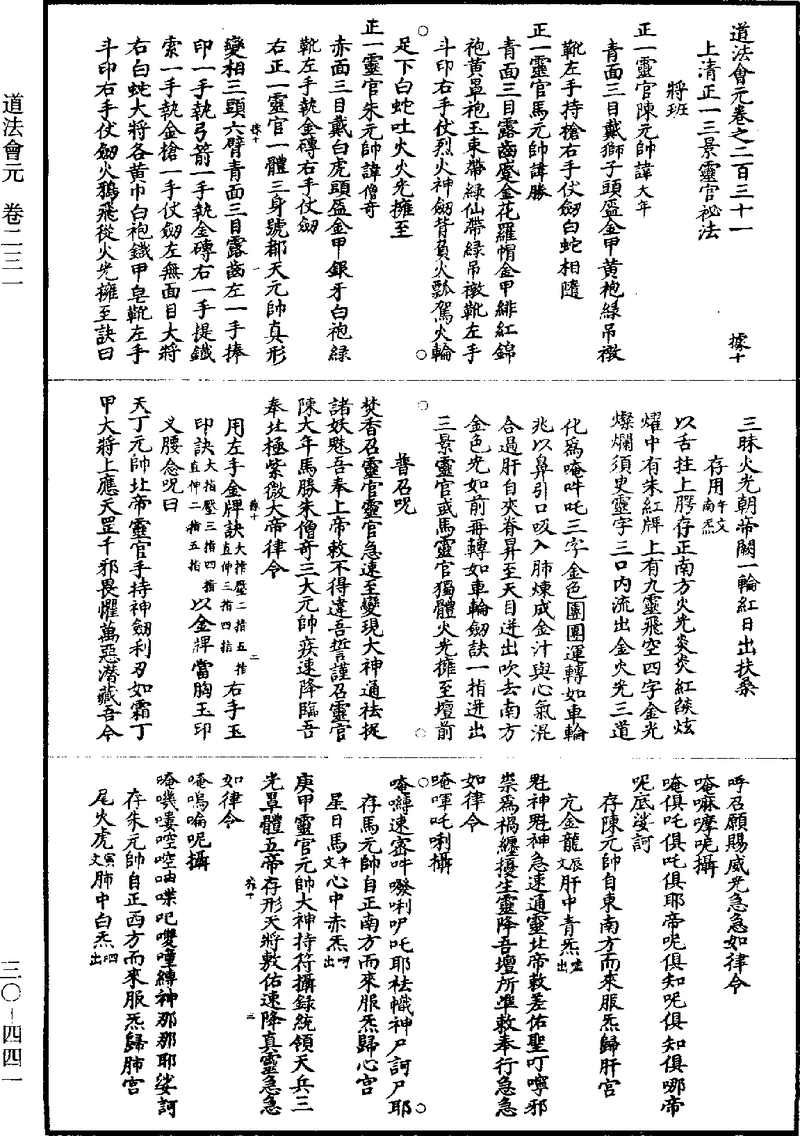 道法會元卷之二百三十一
據十
上清正一三景靈官祕法
將班
正一靈官陳元帥諱大年
青面三目戴獅子頭盔金甲黃袍綠吊襒
靴左手持槍右手仗劒白蛇相隨
正一靈官馬元帥諱勝
青面三目露齒麼金花羅帽金甲緋紅錦
袍黃罩袍玉束帶綠仙帶綠吊襒靴左手
斗印右手仗烈火神劒背負火瓢駕火輪
足下白蛇吐火火光擁至
正一靈官朱元帥諱僧奇
赤面三目戴白虎頭盔金甲銀牙白袍綠
靴左手執金磚右手仗劒
右正一靈官一體三身號都天元帥真形
變相三頭六臂青面三目露齒左一手捧
印一手執弓箭一手執金磚右一手提鐵
索一手執金槍一手仗劒左無面目大將
右白蛇大將各黃巾白袍鐵甲皂靴左手
斗印右手仗劒火鴉飛從火光擁至訣曰
三昧火光朝帝闕一輪紅日出扶桑
存用午文南炁
以舌拄上腭存正南方火光炎炎紅燄炫
燿中有朱紅牌上有九靈飛空四字金光
燦爛須臾靈字三口內流出金火光三道
化為唵吽吒三字金色團團運轉如車輪
兆以鼻引口吸入肺煉成金汁與心氣混
合過肝自夾脊昇至天目迸出吹去南方
金色光如前再轉如車輪劒訣一指迸出
三景靈官或馬靈官獨體火光擁至壇前
普召呪
焚香召靈官靈官急速至變現大神通祛捉
諸妖魁吾奉上帝敕不得違吾誓謹召靈官
陳大年馬勝朱僧奇三大元帥疾速降臨吾
奉北極紫微大帝律令
用左手金牌訣大指壓二指五指直伸三指四指右手玉
印訣大指壓三指四指直伸二指五指以金牌當胸玉印
义腰念呪曰
天丁元帥北帝靈官手持神劒利刃如霜丁
甲大將上應天罡千邪畏懼萬惡潛藏吾今
呼召願賜威光急急如律令
唵嘛嚤呢攝
唵俱吒俱吒俱耶帝呢俱知呪俱知俱哪帝
呢底娑訶
存陳元帥自東南方而來服炁歸肝宮
亢金龍辰文肝中青炁噓出
魁神魁神急速通靈北帝敕差佑聖叮嚀邪
祟為禍纏擾生靈降吾壇所準敕奉行急急
如律令
唵㖇吒唎攝
存馬元帥自正南方而來服炁歸心宮
星日馬午文心中赤炁呵出
庚甲靈官元帥大神持符攝錄統領天兵三
光罩體五帝存形天將敷佑速降真靈急急
如律令
唵嗚喻呢攝
存朱元帥自正西方而來服炁歸肺宮
尾火虎寅文肺中白炁呬出
道法會元 卷二三一
三〇-四四一